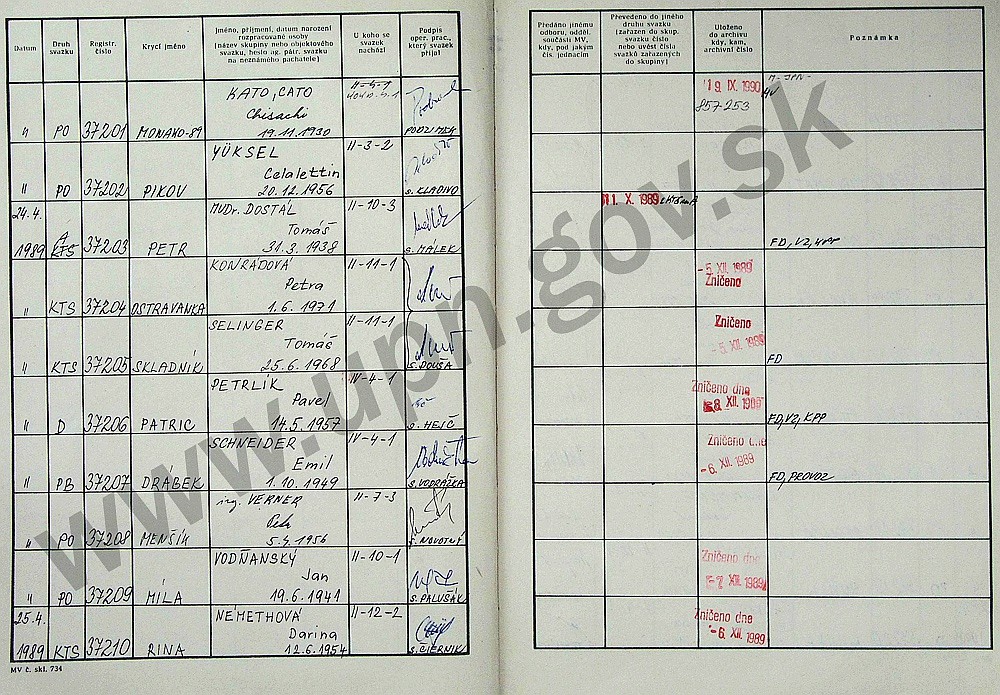 Datum
Druh svazku
Registr. číslo
Krycí jméno
Jméno, příjmení, datum narození
rozpracované osoby
(název skupiny nebo objektového
svazku, heslo ag. pátr. svazku
na neznámého pachatele)
U koho se svazek nachází
Podpis oper. prac., který svazek přijal
Předáno jinému odboru, odděl. součásti MV, kdy, pod jakým čís. jednacím
Převedeno do jiného druhu svazku (zařazen do skup. svazku číslo nebo uvést čísla svazků zařazených do skupiny)
Uloženo do archivu kdy, kam, archivní číslo
Poznámka
KATO, CATO II-5-1 19. IX. 1990
Chisachi 857-253
" PO 37201 MONAKO-89 19.11.1930 PODZIMEK
YÜKSEL II-3-2
Celalettin
" PO 37202 PIKOV 20.12.1956 S. KLADIVO
24.4. MUDr. DOSTÁL II-10-3 11. X. 1989
Tomáš
1989 KTS 37203 PETR 31.3.1938 S. MÁLEK FD, VZ, KPP
KONRÁDOVÁ II-11-1 -5. XII. 1989
Petra Zničeno
" KTS 37204 OSTRAVANKA 1.6.1971
SELINGER II-11-1 Zničeno
Tomáš -5. XII. 1989
" KTS 37205 SKLADNÍK 25.6.1968 S. DOUŠA FD
PETRLÍK IV-4-1 Zničeno dne
Pavel XII. 1989
" D 37206 PATRIC 14.5.1957 S. HEJČ FD, VZ, KPP
SCHNEIDER IV-4-1 Zničeno dne
Emil -6. XII. 1989
" PB 37207 DRÁBEK 1.10.1949 S. VODRÁŽKA FD, PROVOZ
ing. VERNER II-7-3
Petr
" PO 37208 MENŠÍK 5.4.1956 S. NOVOTNÝ
VODŇANSKÝ II-10-1 Zničeno dne
Jan -7. XII. 1989
" PO 37209 MÍLA 19.6.1941 S. PALUŠÁK
25.4. NÉMETHOVÁ II-12-2 Zničeno dne
Darina -6. XII. 1989
1989 KTS 37210 RINA 12.6.1954 S. ČIERNIK
MV č. skl. 734
www.upn.gov.sk